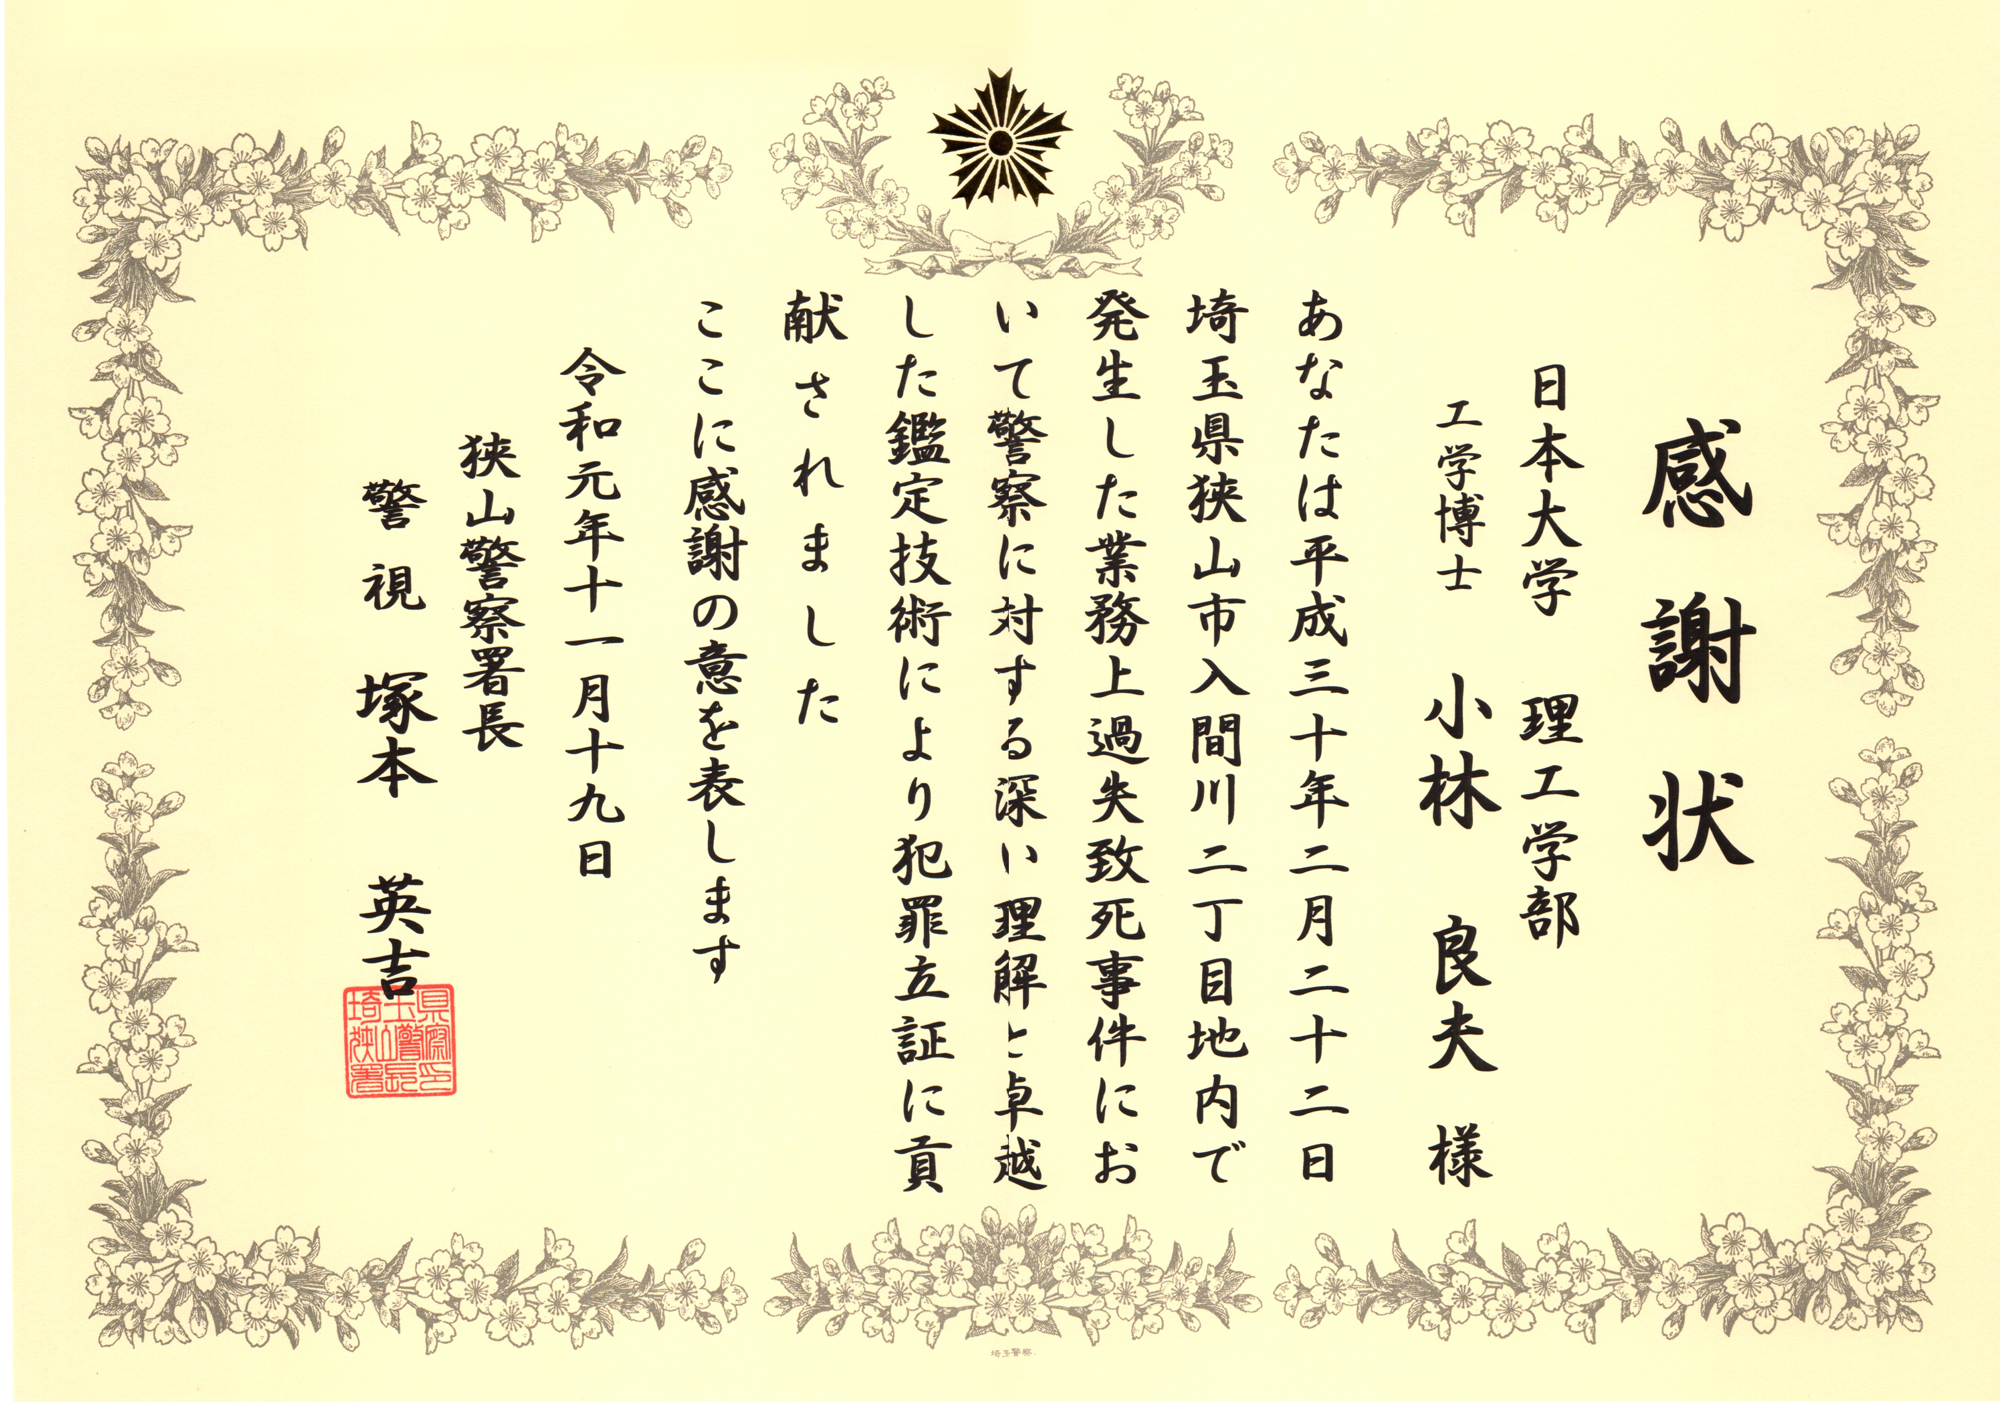 感謝状
日本大学 理工学部
工学博士 小林 良夫 様
あなたは平成三十年二月二十二日
埼玉県狭山市入間川二丁目地内で
発生した業務上過失致死事件にお
いて警察に対する深い理解と卓越
した鑑定技術により犯罪立証に貢
献されました
ここに感謝の意を表します
令和元年十一月十九日
狭山警察署長
警視 塚本 英吉
埼玉県
狭山警察
署長印
埼玉警察